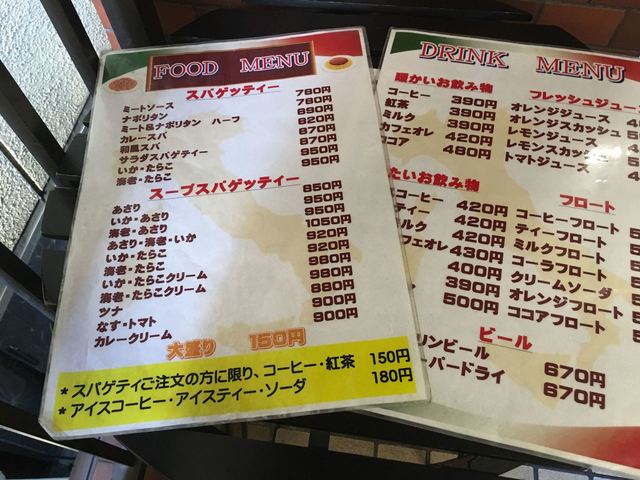 FOOD MENU
スパゲッティー
ミートソース 780円
ナポリタン 780円
ミート&ナポリタン ハーフ 890円
カレースパ 820円
和風スパ 870円
サラダスパゲティー 870円
いか・たらこ 950円
海老・たらこ 950円
スープスパゲッティー
あさり 850円
いか・あさり 950円
海老・あさり 950円
あさり・海老・いか 1050円
いか・たらこ 920円
海老・たらこ 920円
いか・たらこクリーム 980円
海老・たらこクリーム 980円
ツナ 880円
なす・トマト 900円
カレークリーム 900円
大盛り 150円
*スパゲティご注文の方に限り、コーヒー・紅茶 150円
*アイスコーヒー・アイスティー・ソーダ 180円
DRINK MENU
暖かいお飲み物
コーヒー 390円
紅茶 390円
ミルク 390円
カフェオレ 420円
ココア 480円
フレッシュジュー
オレンジジュース
オレンジスカッシュ
レモンジュース
レモンスカッシュ
トマトジュース
たいお飲み物
コーヒー 420円
ティー 420円
ルク 420円
フェオレ 430円
400円
390円
500円
フロート
コーヒーフロート
ティーフロート
ミルクフロート
コーラフロート
クリームソーダ
オレンジフロート
ココアフロート
ビール
リンビール 670円
ーパードライ 670円